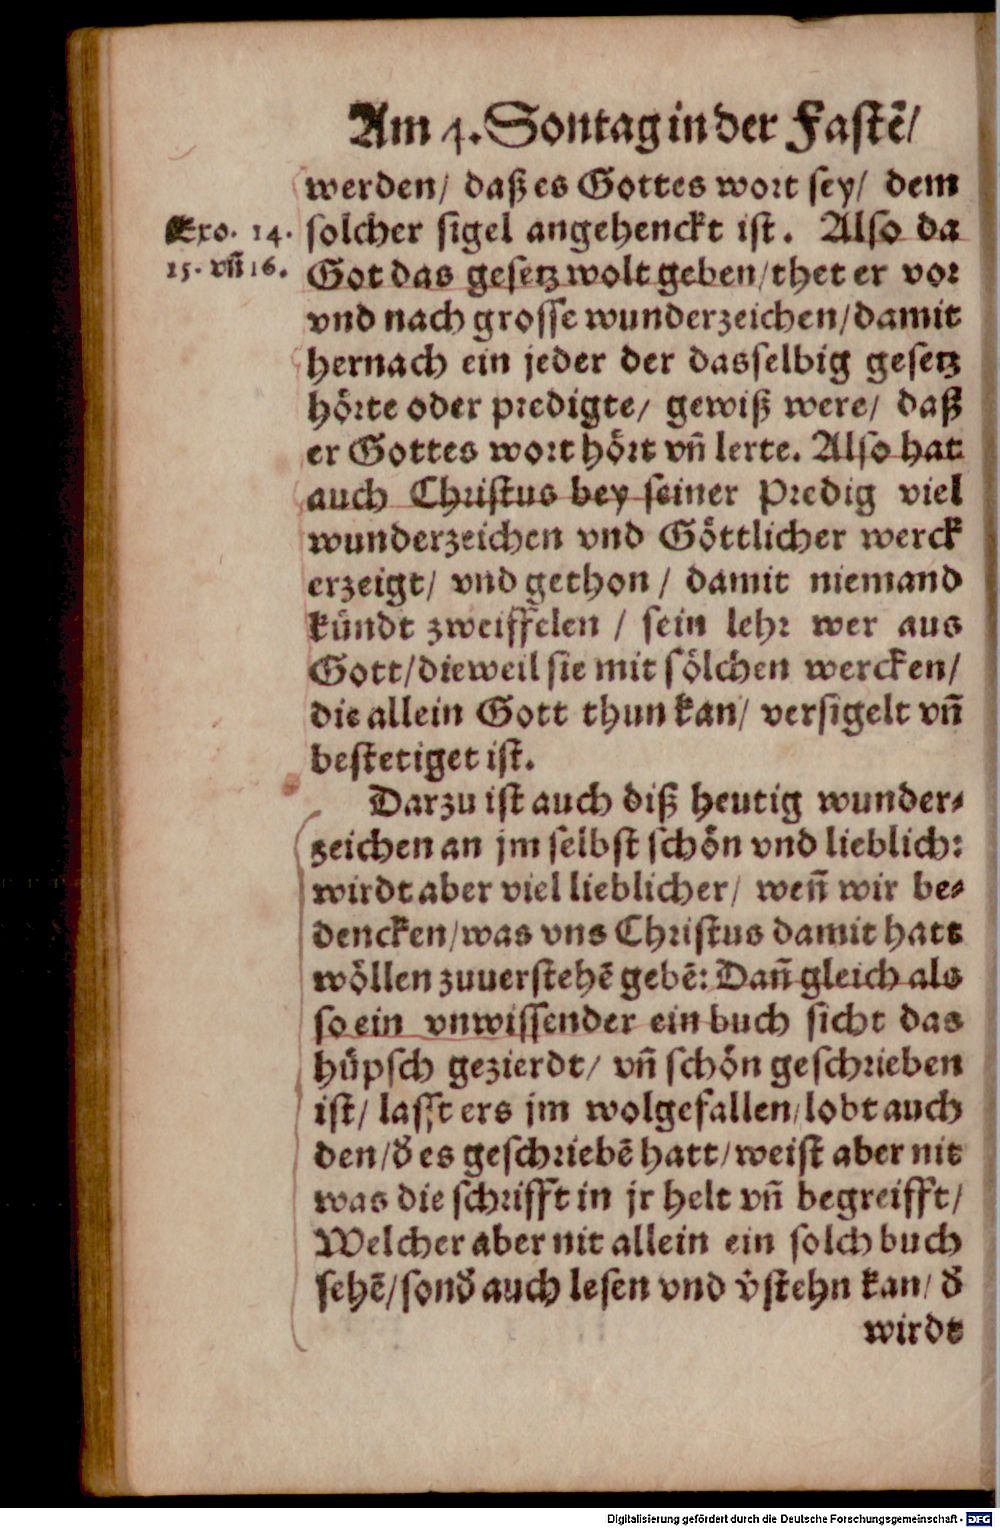 Am 4. Sontag in der Fastē/
werden/ daß es Gottes wort sey/ dem
Exo. 14.
15. vn̄ 16.
solcher sigel angehenckt ist. Also da
Got das gesetz wolt geben/thet er vor
vnd nach grosse wunderzeichen/damit
hernach ein jeder der dasselbig gesetz
hörte oder predigte/ gewiß were/ daß
er Gottes wort hört vn̄ lerte. Also hat
auch Christus bey seiner Predig viel
wunderzeichen vnd Göttlicher werck
erzeigt/ vnd gethon/ damit niemand
kündt zweiffelen / sein lehr wer aus
Gott/dieweil sie mit sölchen wercken/
die allein Gott thun kan/ versigelt vn̄
bestetiget ist.
Darzu ist auch diß heutig wunder⸗
zeichen an jm selbst schön vnd lieblich:
wirdt aber viel lieblicher/ wen̄ wir be⸗
dencken/was vns Christus damit hatt
wöllen zuuerstehē gebē: Dan̄ gleich als
so ein vnwissender ein buch sicht das
hüpsch gezierdt/ vn̄ schön geschrieben
ist/ lasst ers jm wolgefallen/lobt auch
den/d̄ es geschriebē hatt/weist aber nit
was die schrifft in jr helt vn̄ begreifft/
Welcher aber nit allein ein solch buch
sehē/sond̄ auch lesen vnd v̄stehn kan/ d̄
wirdt
Digitalisierung gefördert durch die Deutsche Forschungsgemeinschaft - DFG